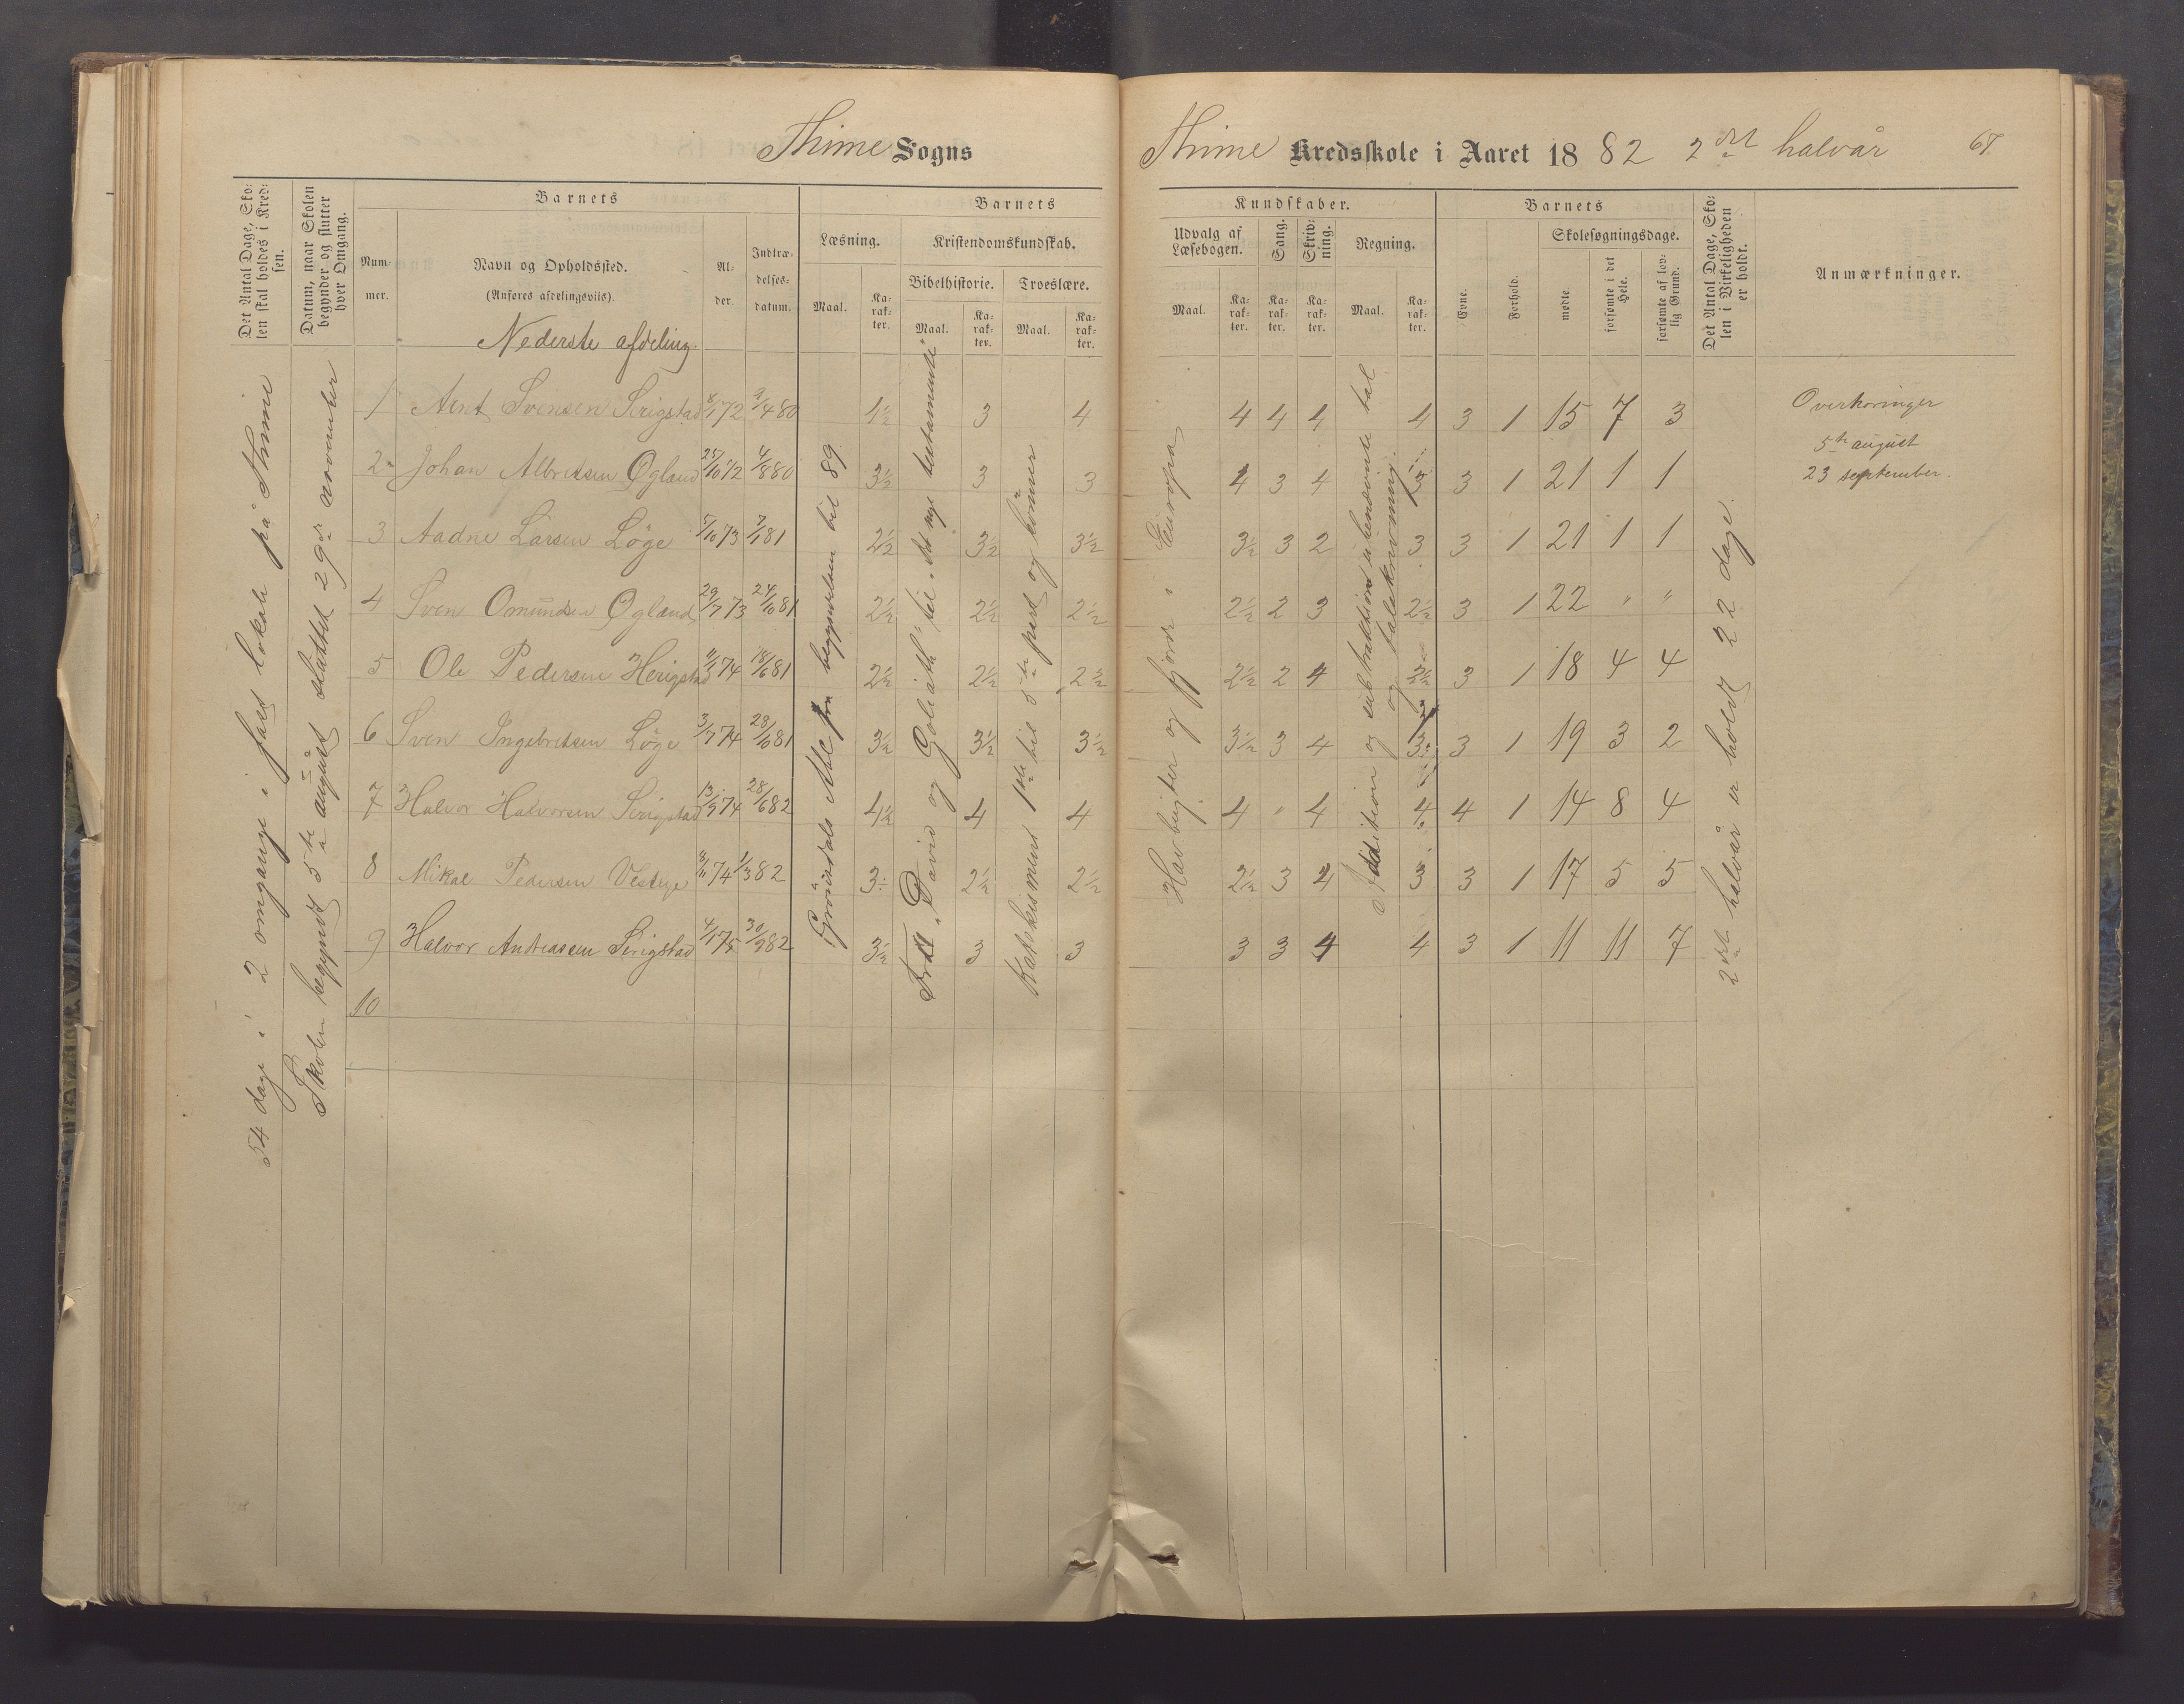 Thime Sogns
Thime Kredsskole i Aaret 1882 2det halvår 67
Det Antal Dage, Skolen skal holdes i Kredsen.
Datum, naar Skolen begynder og slutter hver Omgang.
Barnets
Nummer.
Navn og Opholdssted.
(Anføres afdelingsviis).
Alder.
Indtrædelsesdatum.
Barnets
Læsning.
Maal.
Karakter.
Kristendomskundskab.
Bibelhistorie.
Maal.
Karakter.
Troeslære.
Maal.
Karakter.
Kundskaber.
Udvalg af Læsebogen.
Maal.
Karakter.
Sang.
Karakter.
Skrivning.
Karakter.
Regning.
Maal.
Karakter.
Barnets
Evne.
Forhold.
Skolesøgningsdage.
mødte
forsømte i det Hele.
forsømte af lovlig Grund.
Det Antal Dage, Skolen i Virkeligheden er holdt.
Anmærkninger.
Nederste afdeling.
54 dage i 2 omgange i fast lokale på Thime
Skolen begyndt 5te august sluttet 29de november
til 89
"David og Goliath" til "Det nye testamente"
Katekismens 1ste til 5te part og bönner
Havbugter og fjorde i Europa
Addition og subtraktion ubenævnte tal og talskrivning.
2det halvår er holdt 22 dage.
1 Arnt Svensen Serigstad 8/1 72 2/4 80 4½ 3 4 4 4 4 4 3 1 15 7 3
2 Johan Albretsen Øgland 25/10 72 4/8 80 3½ 3 3 4 3 4 3 3 1 21 1 1
3 Aadne Larsen Löge 5/10 73 7/1 81 2½ 3½ 3½ 3½ 3 2 3 3 1 21 1 1
4 Sven Omundsen Øgland 29/7 73 24/10 81 2½ 2½ 2½ 2½ 2 3 2½ 3 1 22 " "
5 Ole Pedersen Herigstad 11/1 74 18/6 81 2½ 2½ 2½ 2½ 2 4 3½ 3 1 18 4 4
6 Sven Ingebretsen Löge 3/7 74 28/10 81 3½ 3½ 3½ 3½ 3 4 3½ 3 1 19 3 2
7 Halvor Halvorsen Serigstad 13/9 74 28/6 82 4½ 4 4 4 " 4 4 4 1 14 8 4
8 Mikal Pedersen Vestlye 8/11 74 1/3 82 3 2½ 2½ 2½ 3 4 3 3 1 17 5 5
9 Halvor Andreassen Serigstad 4/1 75 30/9 82 3½ 3 3 3 3 4 4 3 1 11 11 7
10
Overhøringer
5te august
23 september.